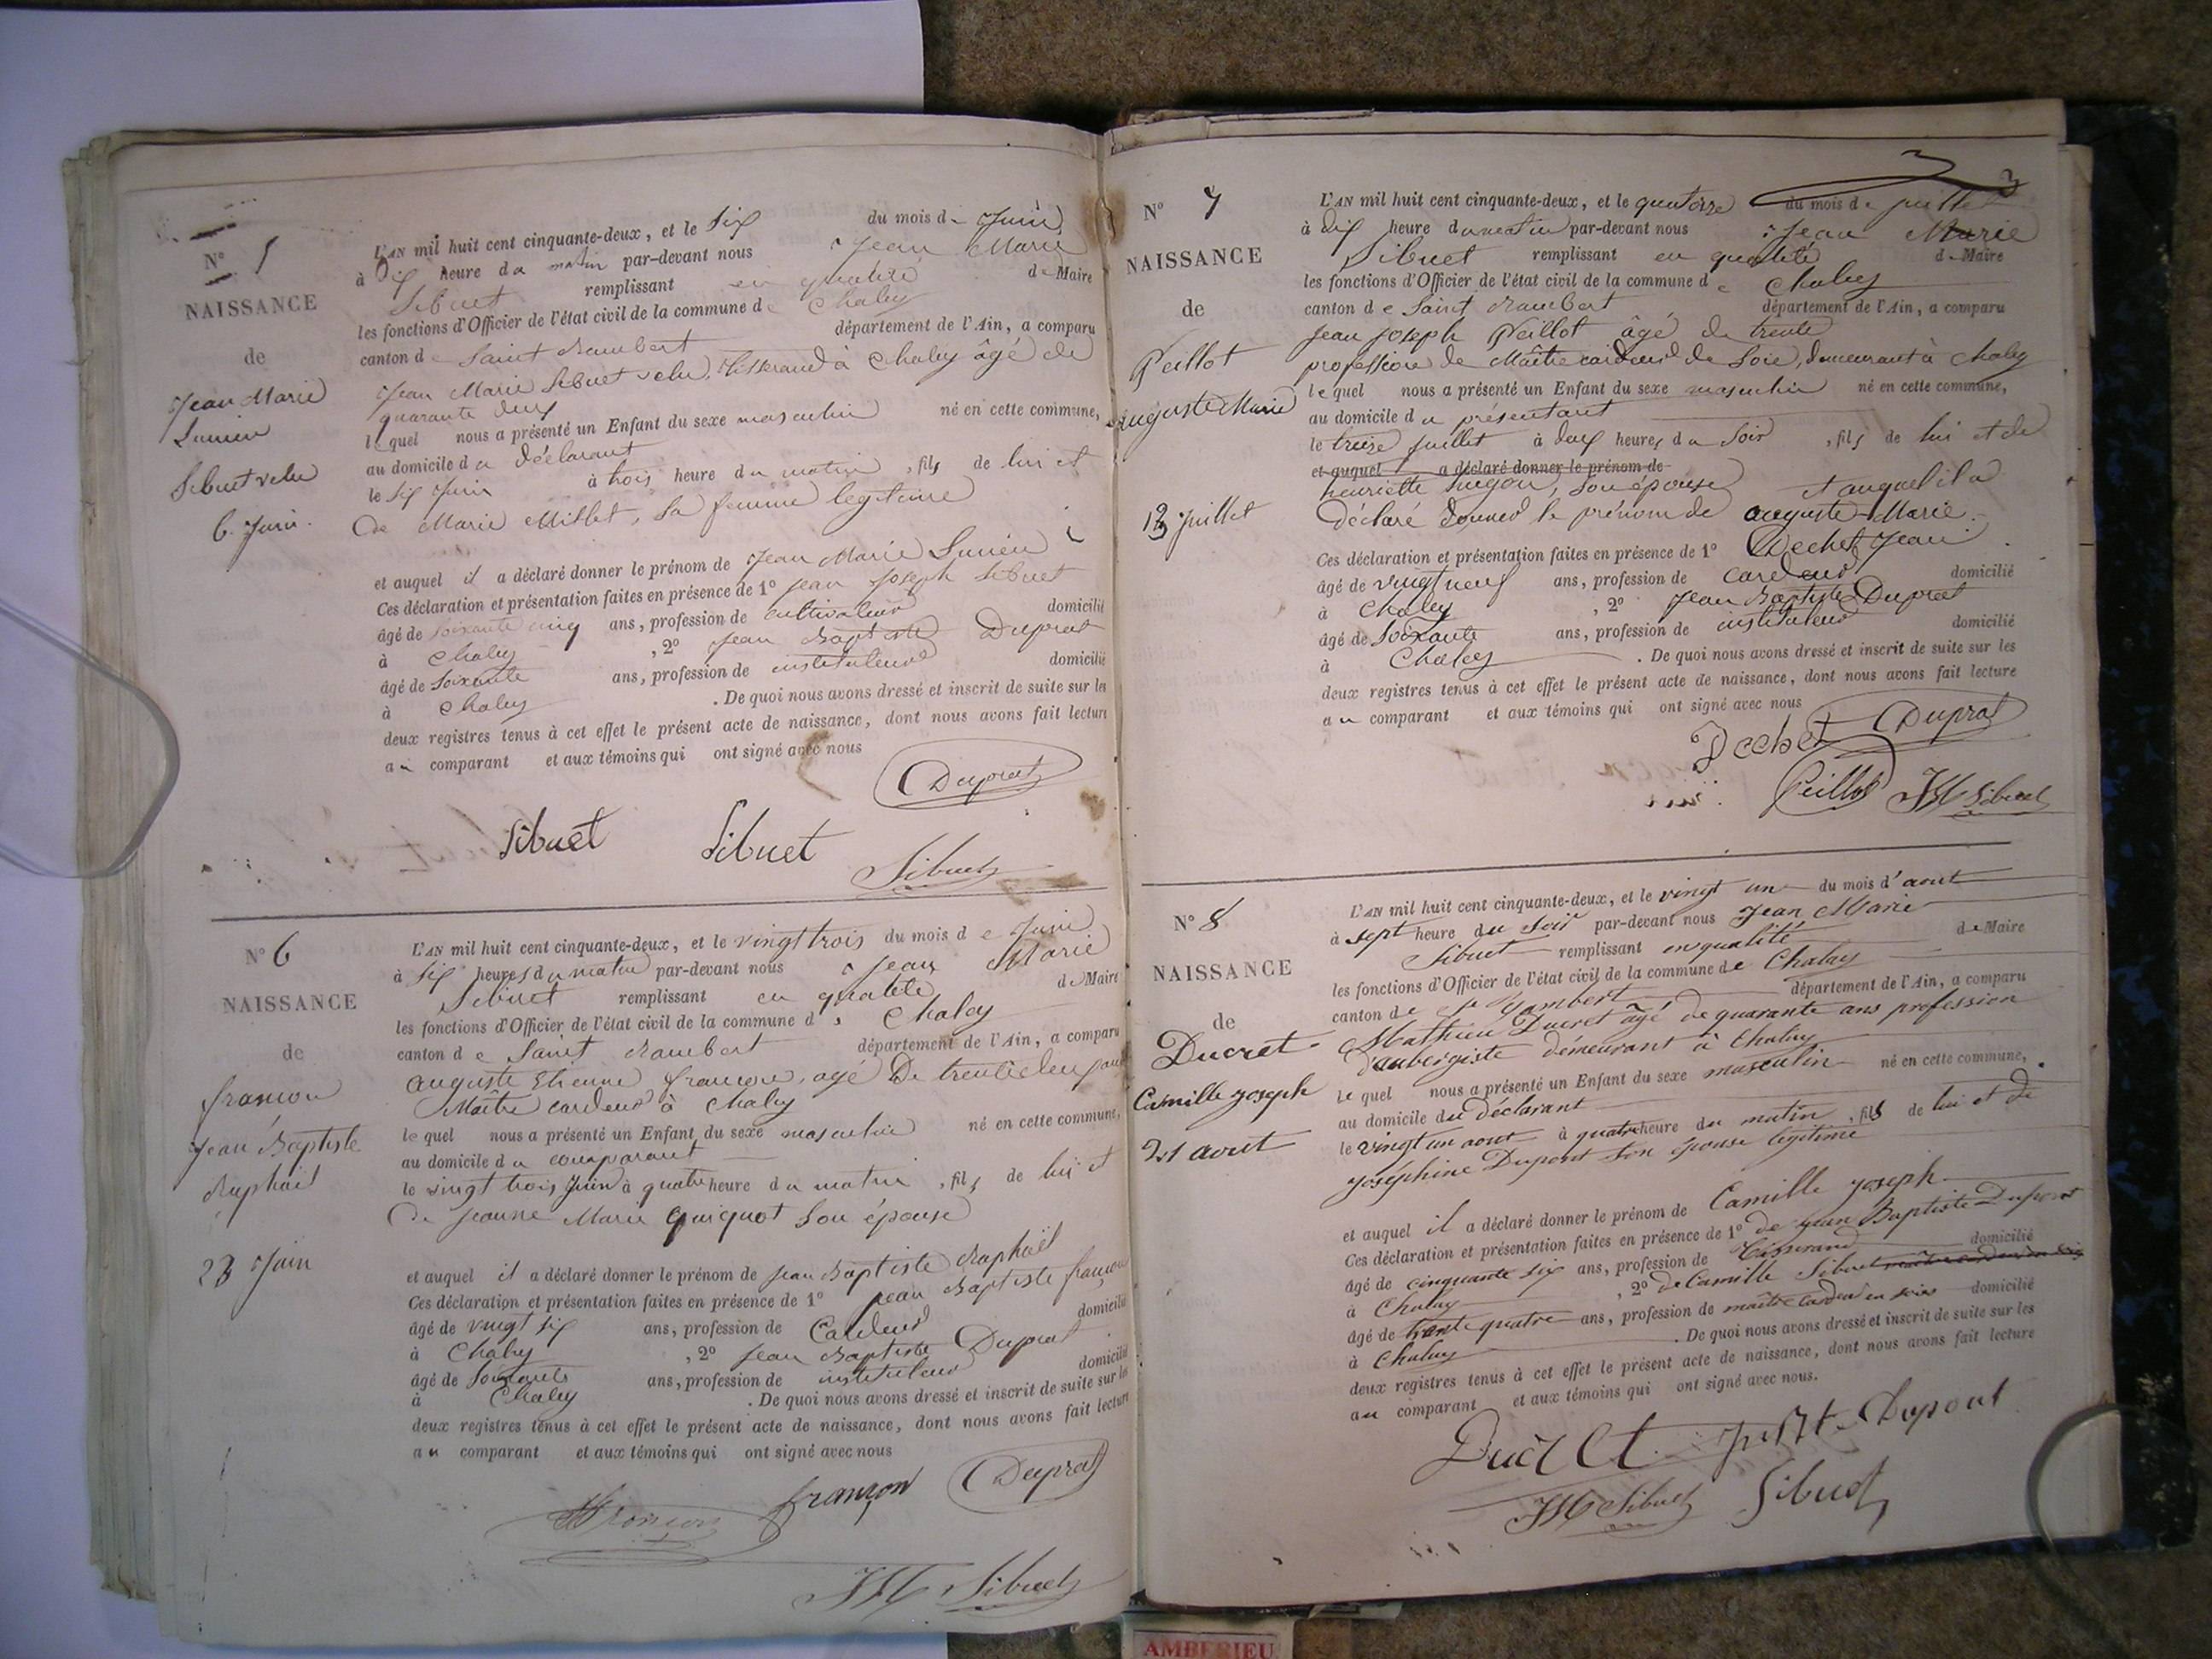 N° 5
NAISSANCE
de
Jean Marie
Lucien
Sibuet velu
6. Juin.
L'AN mil huit cent cinquante-deux, et le Six du mois de Juin
à Dix heure du matin par-devant nous Jean Marie
Sibuet remplissant en qualité de Maire
les fonctions d'Officier de l'état civil de la commune de Chaley
canton de Saint Rambert département de l'Ain, a comparu
Jean Marie Sibuet velu, Tisserand à Chaley âgé de
quarante deux
lequel nous a présenté un Enfant du sexe masculin né en cette commune,
au domicile du déclarant
le six Juin à trois heure du matin, fils de lui et
De Marie Millet, sa femme legitime
et auquel il a déclaré donner le prénom de Jean Marie Lucien
Ces déclaration et présentation faites en présence de 1° Jean Joseph Sibuet
âgé de soixante cinq ans, profession de cultivateur domicilié
à Chaley, 2° Jean Baptiste Duprat
âgé de Soixante ans, profession de instituteur domicilié
à Chaley. De quoi nous avons dressé et inscrit de suite sur les
deux registres tenus à cet effet le présent acte de naissance, dont nous avons fait lecture
au comparant et aux témoins qui ont signé avec nous
Duprat
Sibuet Sibuet
Sibuet
N° 6
NAISSANCE
de
françon
Jean Baptiste
Raphaël
23 Juin
L'AN mil huit cent cinquante-deux, et le vingt trois du mois de Juin
à Six heures du matin par-devant nous Jean Marie
Sibuet remplissant en qualité de Maire
les fonctions d'Officier de l'état civil de la commune de Chaley
canton de Saint Rambert département de l'Ain, a comparu
auguste Etienne françon, agé De trente deux ans
Maître cardeur à Chaley
lequel nous a présenté un Enfant du sexe masculin né en cette commune,
au domicile du comparant
le vingt trois Juin à quatre heure du matin, fils de lui et
De Jeanne Marie quiquot son épouse
et auquel il a déclaré donner le prénom de Jean Baptiste Raphaël
Ces déclaration et présentation faites en présence de 1° Jean Baptiste françon
âgé de vingt six ans, profession de Cardeur domicilié
à Chaley, 2° Jean Baptiste Duprat
âgé de Soixante ans, profession de instituteur domicilié
à Chaley. De quoi nous avons dressé et inscrit de suite sur les
deux registres tenus à cet effet le présent acte de naissance, dont nous avons fait lecture
au comparant et aux témoins qui ont signé avec nous
françon Duprat
JM Sibuet
N° 7
NAISSANCE
de
Peillot
auguste Marie
13 Juillet
L'AN mil huit cent cinquante-deux, et le quatorze du mois de juillet
à dix heure du matin par-devant nous Jean Marie
Sibuet remplissant en qualité de Maire
les fonctions d'Officier de l'état civil de la commune de Chaley
canton de Saint Rambert département de l'Ain, a comparu
Jean Joseph Peillot âgé de trente
profession de Maître cardeur de Soie, demeurant à Chaley
lequel nous a présenté un Enfant du sexe masculin né en cette commune,
au domicile du présentant
le treize juillet à deux heures du Soir, fils de lui et de
et auquel a déclaré donner le prénom de
henriette hugon, son épouse et auquel il a
déclaré donner le prénom de auguste-Marie.
Ces déclaration et présentation faites en présence de 1° Dechet Jean
âgé de vingt neuf ans, profession de cardeur domicilié
à Chaley, 2° Jean Baptiste Duprat
âgé de Soixante ans, profession de instituteur domicilié
à Chaley. De quoi nous avons dressé et inscrit de suite sur les
deux registres tenus à cet effet le présent acte de naissance, dont nous avons fait lecture
au comparant et aux témoins qui ont signé avec nous
Dechet Duprat
Peillot JM Sibuet
N° 8
NAISSANCE
de
Ducret
Camille joseph
21 aout
L'AN mil huit cent cinquante-deux, et le vingt un du mois d'aout
à sept heure du soir par-devant nous Jean Marie
Sibuet remplissant en qualité de Maire
les fonctions d'Officier de l'état civil de la commune de Chaley
canton de St Rambert département de l'Ain, a comparu
Mathieu Ducret âgé de quarante ans profession
d'aubergiste demeurant à Chaley
le quel nous a présenté un Enfant du sexe masculin né en cette commune,
au domicile du déclarant
le vingt un aout à quatre heure du matin, fils de lui et de
joséphine Dupont son épouse legitime
et auquel il a déclaré donner le prénom de Camille joseph
Ces déclaration et présentation faites en présence de 1° de jean Baptiste Dupont
âgé de cinquante six ans, profession de Tisserand domicilié
à Chaley, 2° de Camille Sibuet maître cardeur en soie
âgé de trente quatre ans, profession de maître cardeur en soie domicilié
à Chaley. De quoi nous avons dressé et inscrit de suite sur les
deux registres tenus à cet effet le présent acte de naissance, dont nous avons fait lecture
au comparant et aux témoins qui ont signé avec nous.
Ducret Dupont
JM Sibuet Sibuet
AMBERIEU